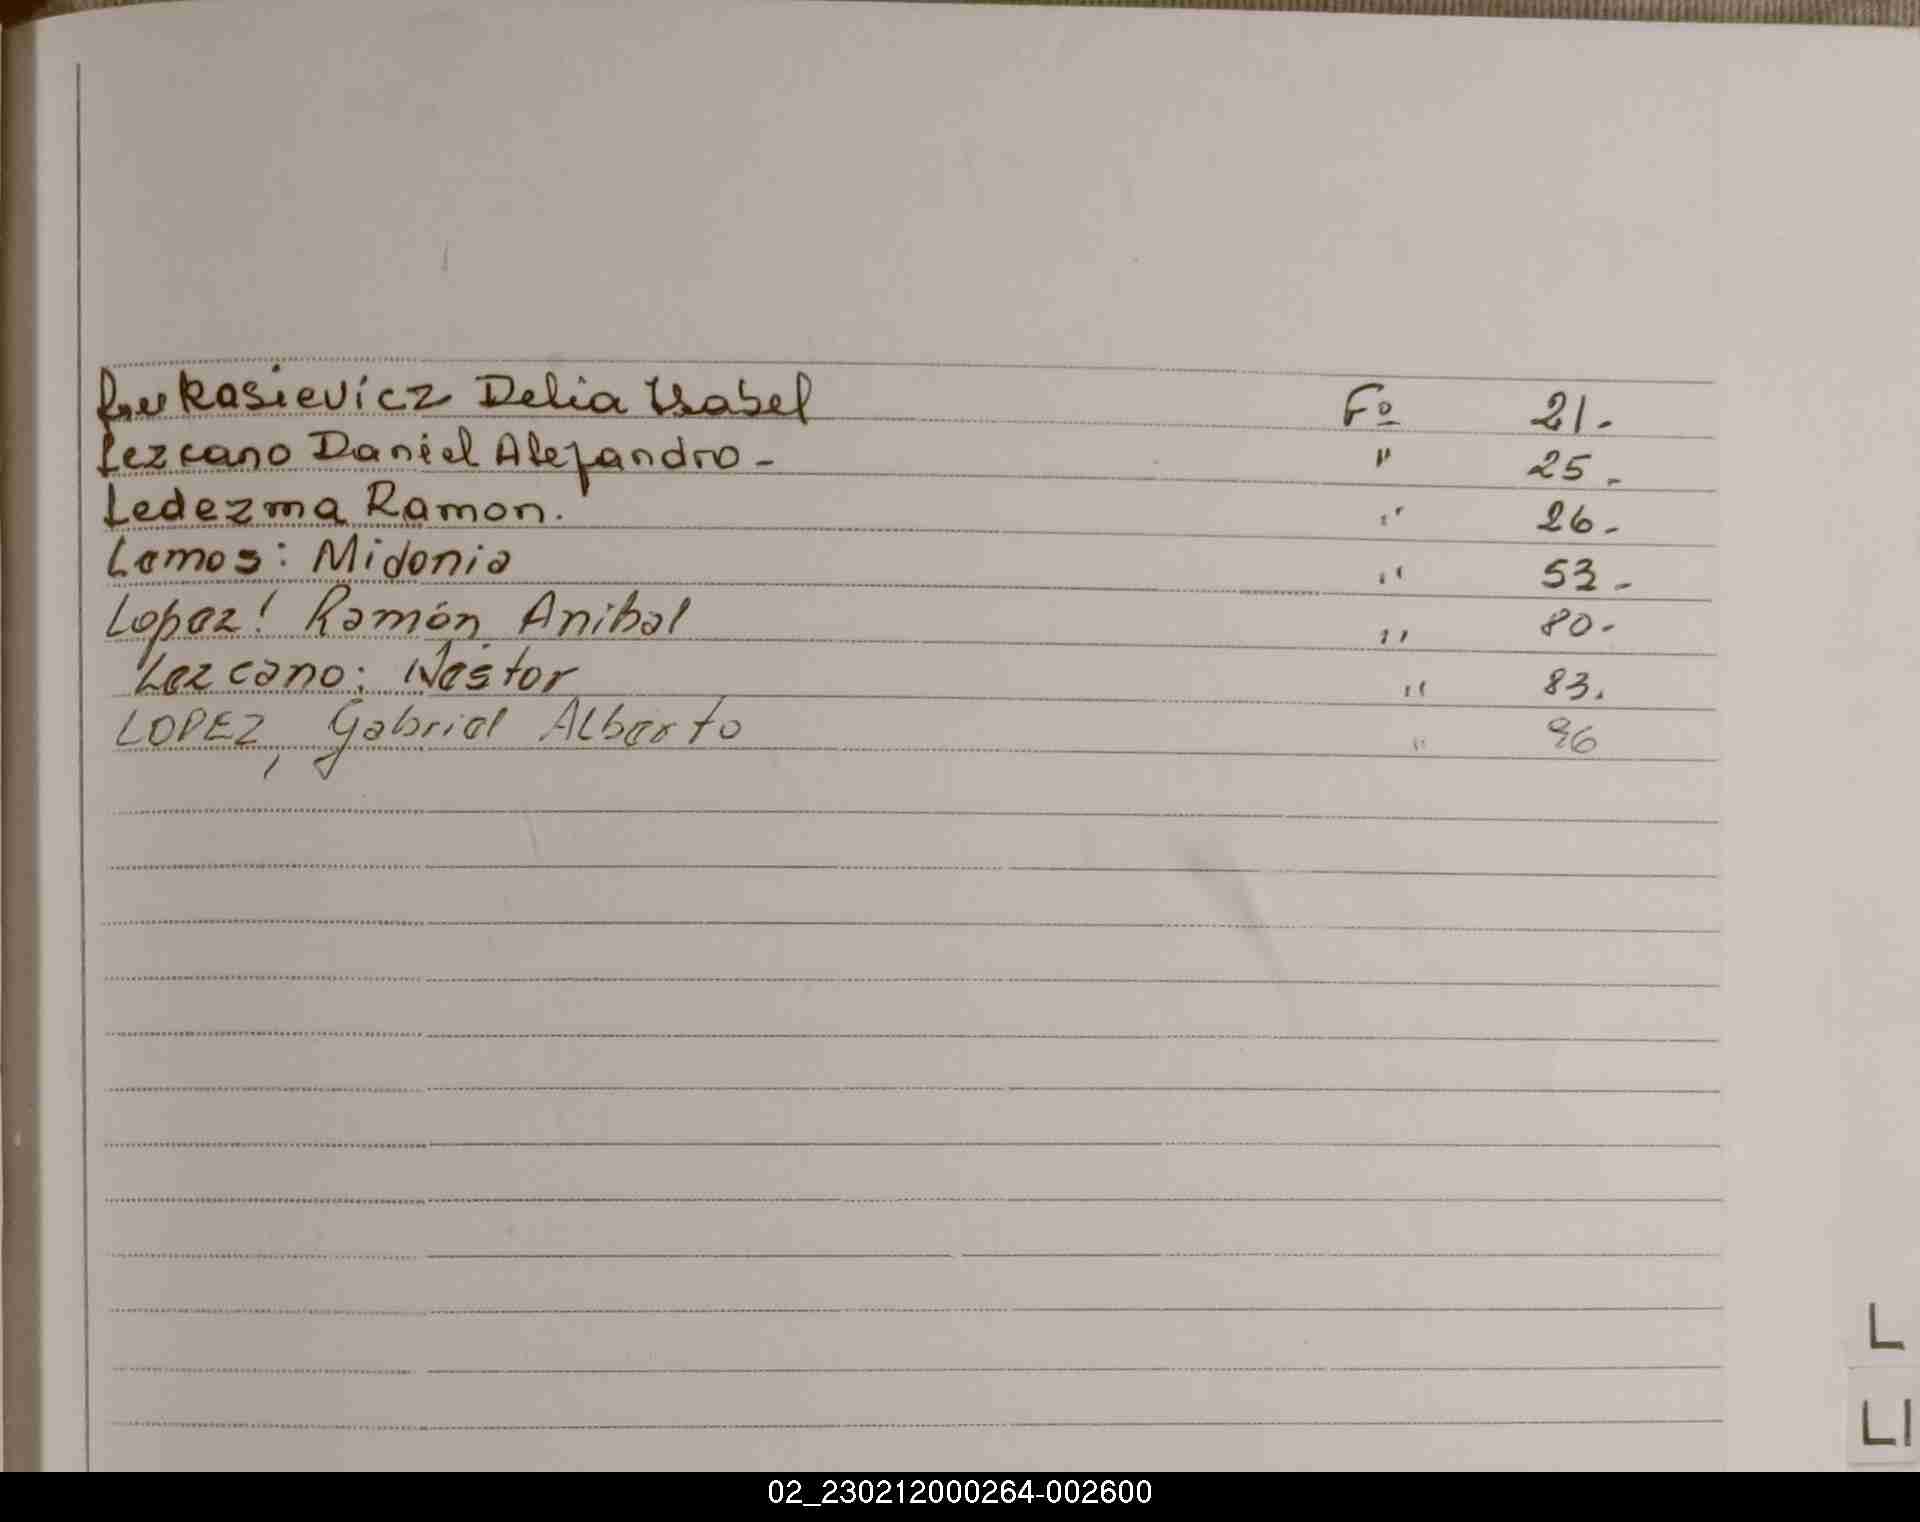 Lukasievicz Delia Isabel Fº 21.-
Lezcano Daniel Alejandro - " 25.-
Ledezma Ramon. " 26.-
Lemos: Midonia " 53.-
Lopez: Ramón Anibal " 80.-
Lezcano: Néstor " 83.
LOPEZ, Gabriel Alberto " 96
L
Ll
02_230212000264-002600